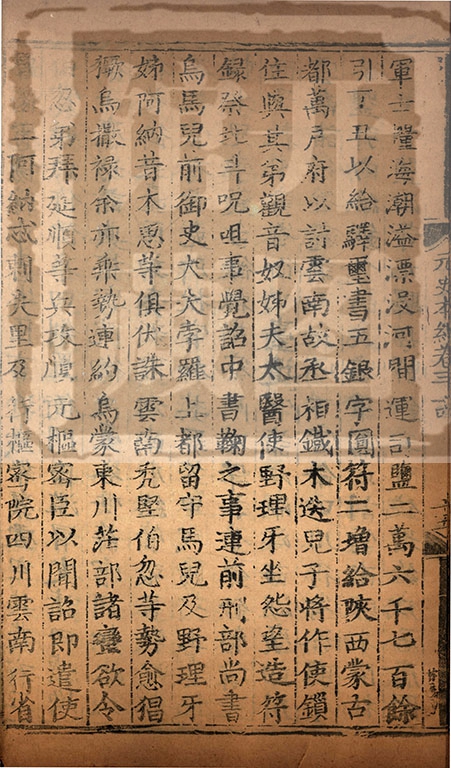 軍士糧海潮溢漂没河間運司鹽二萬六千七百餘
引丁丑以給驛璽書五銀字圓符二增給陜西蒙古
都萬户府以討雲南故丞相鐵木迭兒子將作使鎖
住與其弟觀音奴姊夫太醫使野理牙坐怨望造符
録祭北斗呪咀事覺詔中書鞫之事連前刑部尚書
烏馬兒前御史大夫孛羅上都留守馬兒及野理牙
姊阿納昔木思等俱伏誅雲南秃堅伯忽等勢愈倡
獗烏撒禄余亦乗勢連約烏蒙東川茫部諸蠻欲令
伯忽弟拜延順等兵攻順元樞宻臣以聞詔即遣使
豫王阿納忒剌失里及行樞宻院四川雲南行省
元史本紀卷三